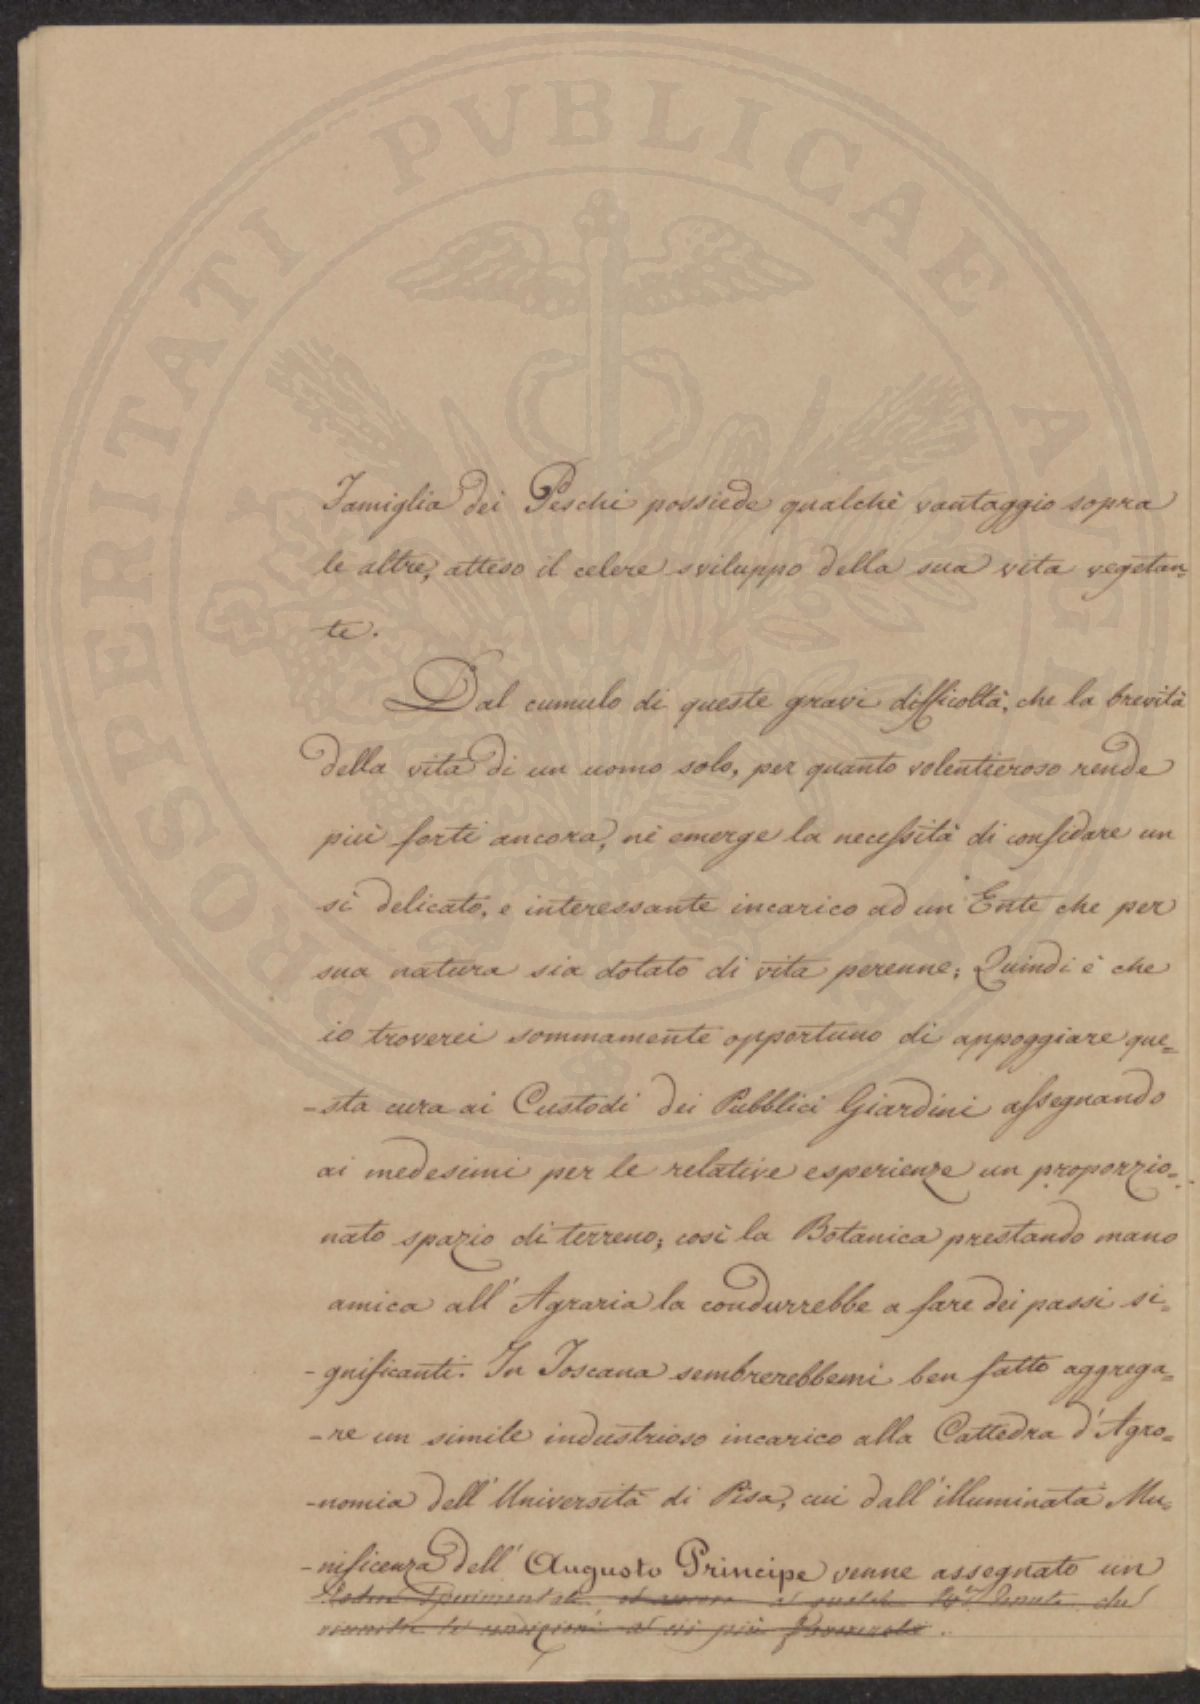 PROSPERITATI PVBLICAE AVGENDAE
Famiglia dei Peschi possiede qualche vantaggio sopra
le altre, atteso il celere sviluppo della sua vita vegetan=
te.
Dal cumulo di queste gravi difficoltà, che la brevità
della vita di un uomo solo, per quanto volentieroso rende
più forti ancora, nè emerge la necessità di confidare un
sì delicato, e interessante incarico ad un Ente che per
sua natura sia dotato di vita perenne; Quindi è che
io troverei sommamente opportuno di appoggiare que=
-sta cura ai Custodi dei Pubblici Giardini assegnando
ai medesimi per le relative esperienze un proporzio=
nato spazio di terreno; così la Botanica prestando mano
amica all' Agraria la condurrebbe a fare dei passi si=
-gnificanti. In Toscana sembrerebbemi ben fatto aggrega=
-re un simile industrioso incarico alla Cattedra d'Agro=
-nomia dell' Università di Pisa, cui dall' illuminata Mu=
-nificenza dell' Augusto Principe venne assegnato un
Podere Sperimentale, ed ancora a qualche Tenuta che
riunisse le condizioni a ciò più favorevoli.